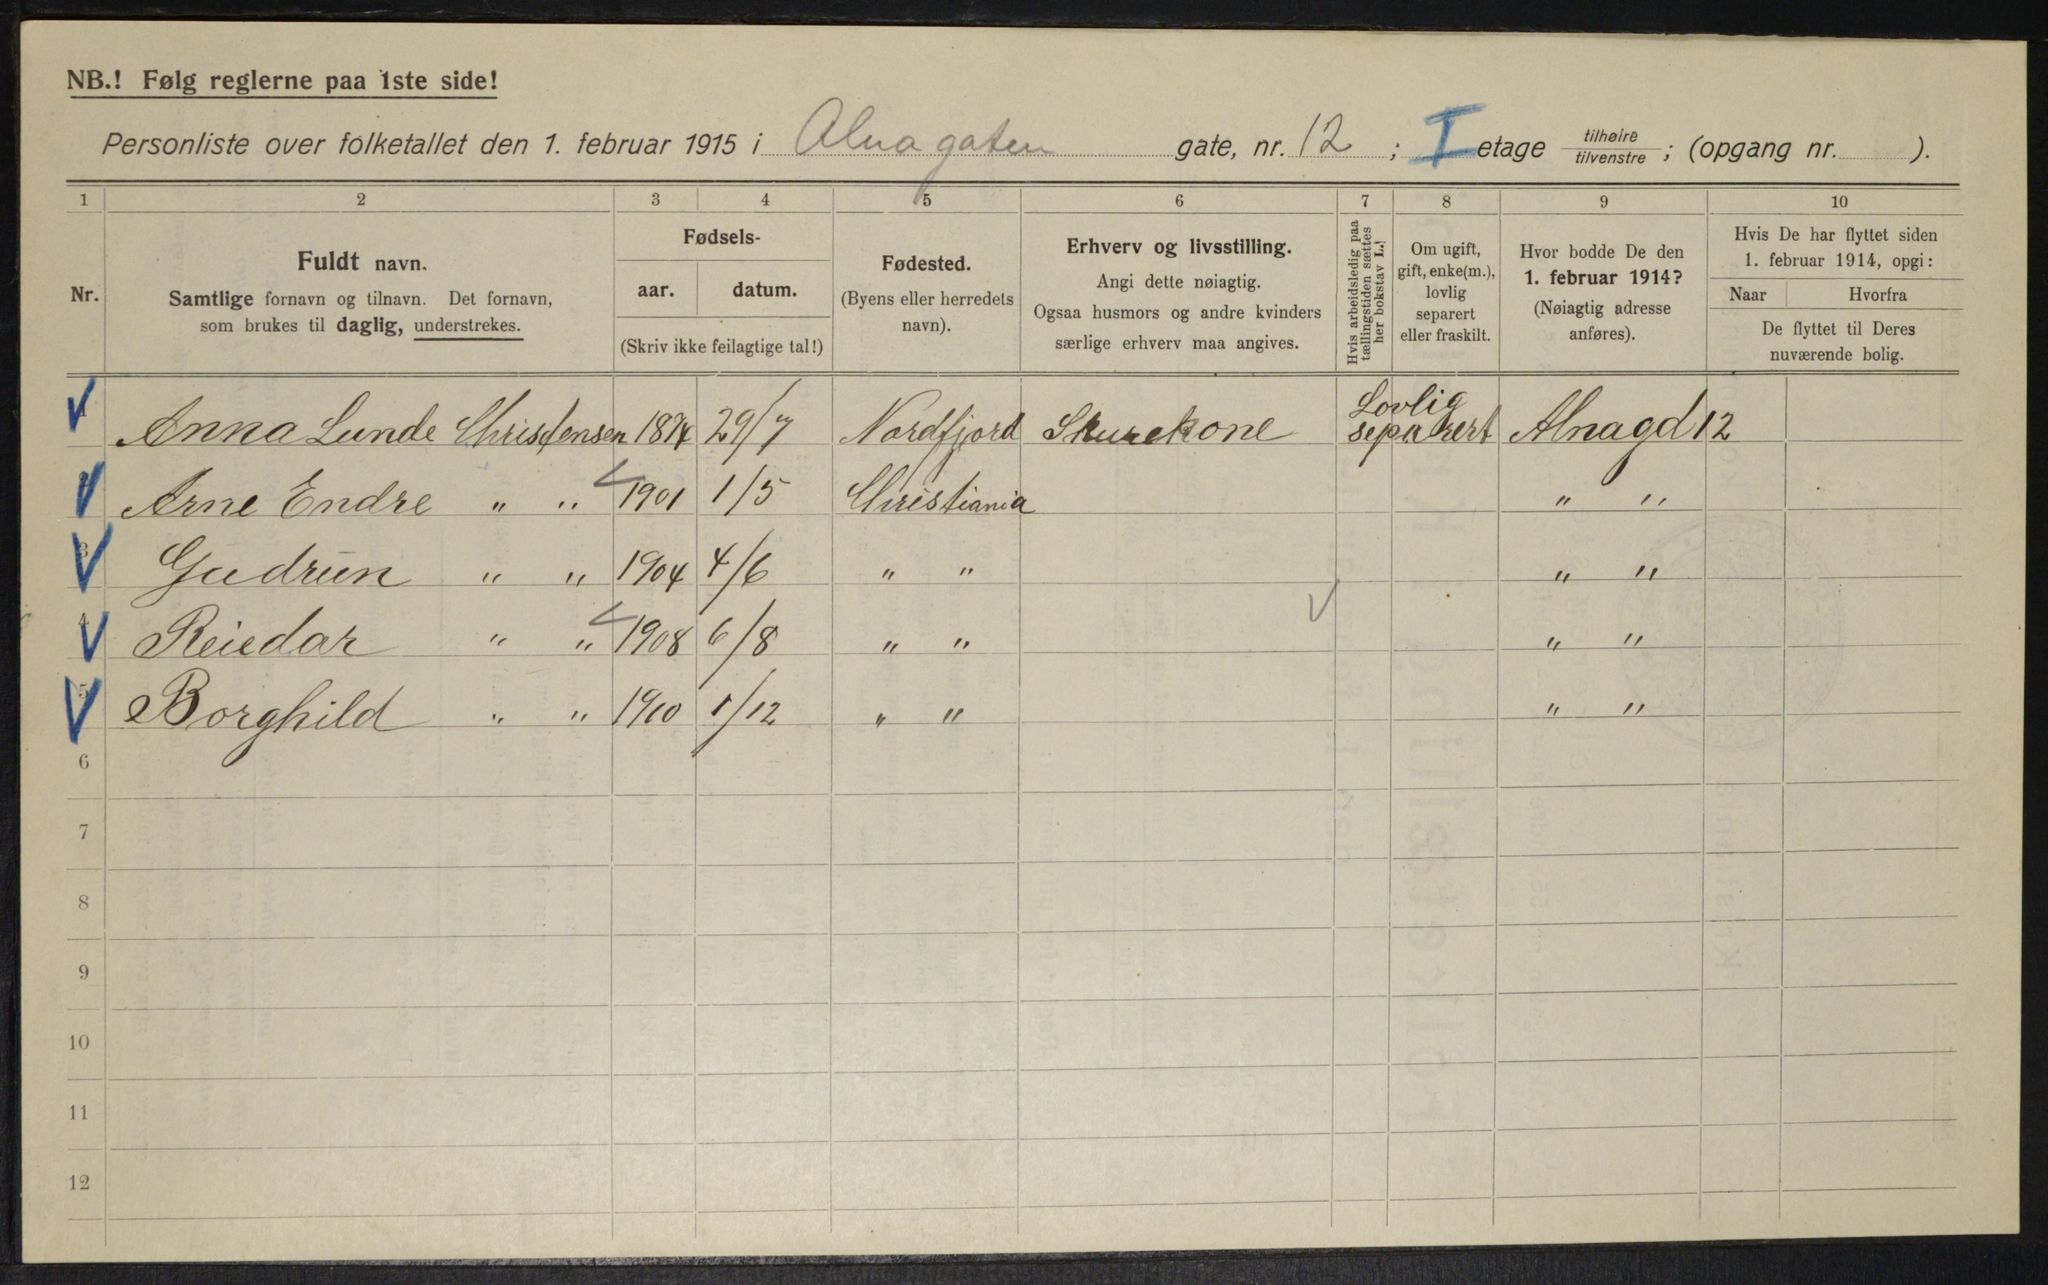 NB.! Følg reglerne paa 1ste side!
Personliste over folketallet den 1. februar 1915 i Alnagaten gate, nr. 12 ; I etage tilhøire tilvenstre ; (opgang nr. ).
1 2 3 4 5 6 7 8 9 10
Nr.
Fuldt navn.
Samtlige fornavn og tilnavn. Det fornavn,
som brukes til daglig, understrekes.
Fødsels-
aar. datum.
(Skriv ikke feilagtige tal!)
Fødested.
(Byens eller herredets
navn).
Erhverv og livsstilling.
Angi dette nøiagtig.
Ogsaa husmors og andre kvinders
særlige erhverv maa angives.
Hvis arbeidsledig paa
tællingstiden sættes
her bokstav L.!
Om ugift,
gift, enke(m.),
lovlig
separert
eller fraskilt.
Hvor bodde De den
1. februar 1914?
(Nøiagtig adresse
anføres).
Hvis De har flyttet siden
1. februar 1914, opgi:
Naar Hvorfra
De flyttet til Deres
nuværende bolig.
1 Anna Lunde Chrisdensen 1874 29/7 Nordfjord Skurekone Lovlig separert Alnagd 12
2 Arne Endre " " 1901 1/5 Christiania " "
3 Gudrun " " 1904 4/6 " " " "
4 Reiedar " " 1908 6/8 " " " "
5 Borghild " " 1910 1/12 " " " "
6
7
8
9
10
11
12